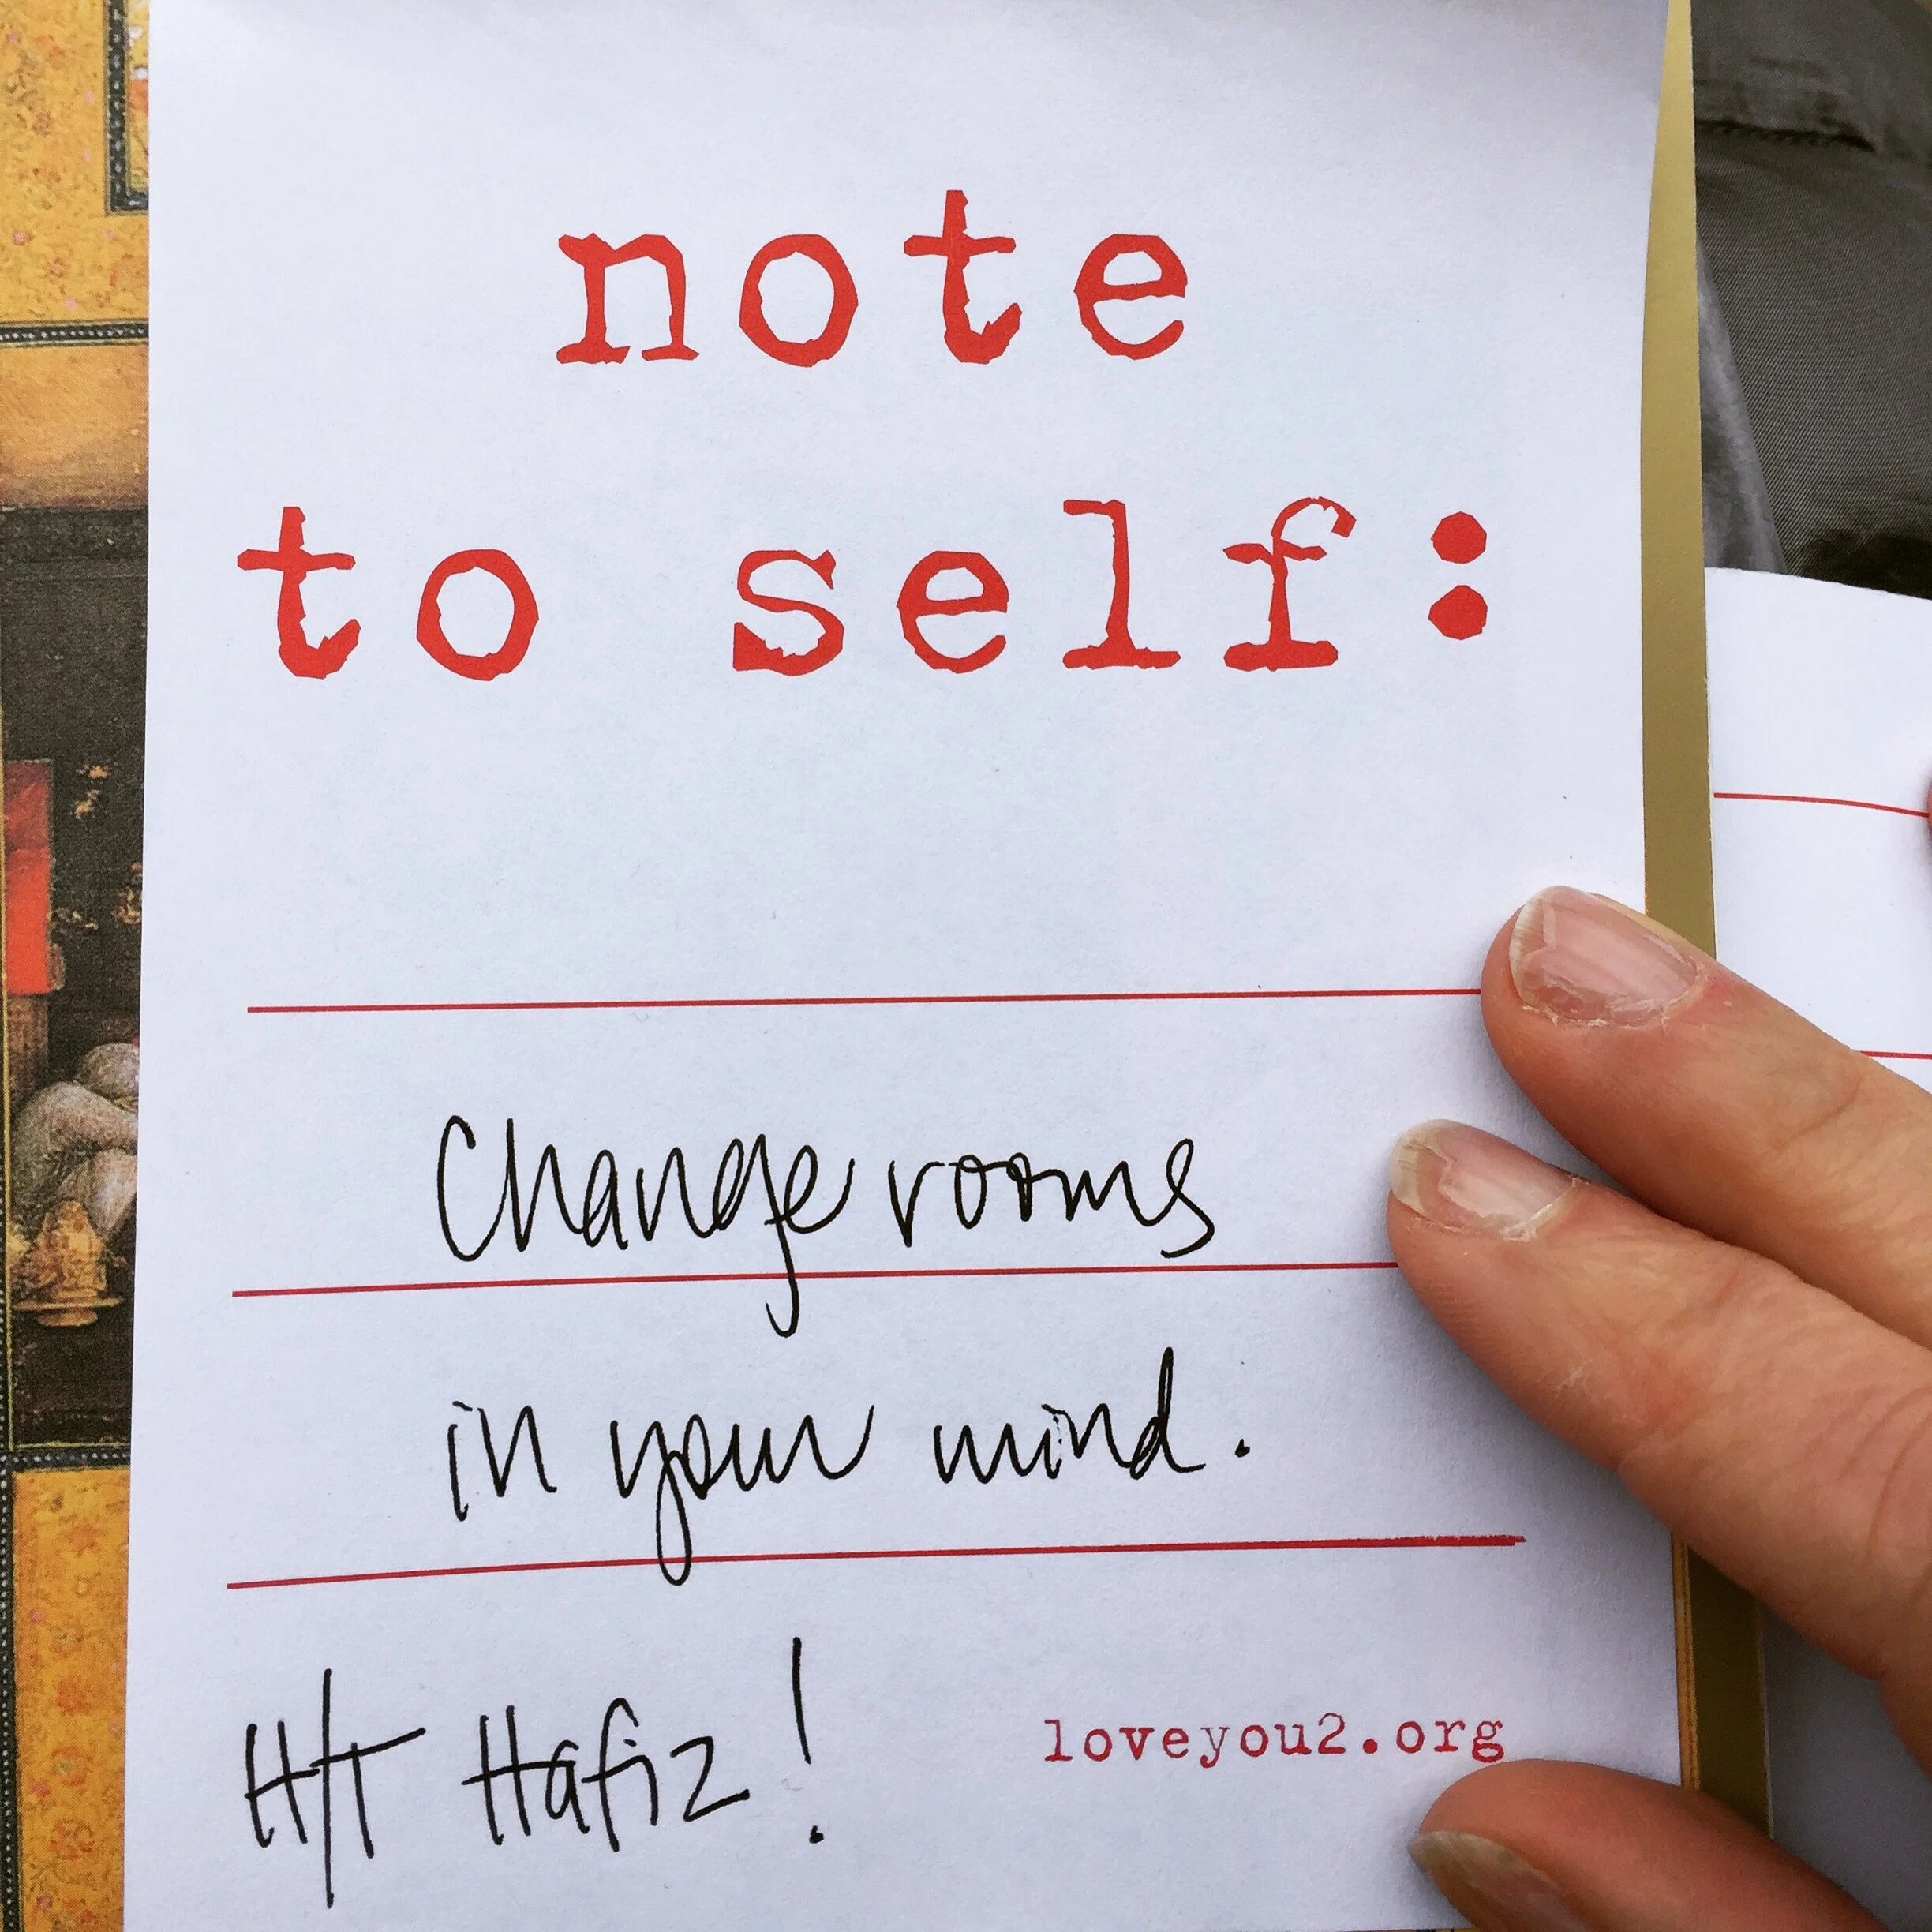 note
to self:
Change rooms
in your mind.
H/T Hafiz!
loveyou2.org